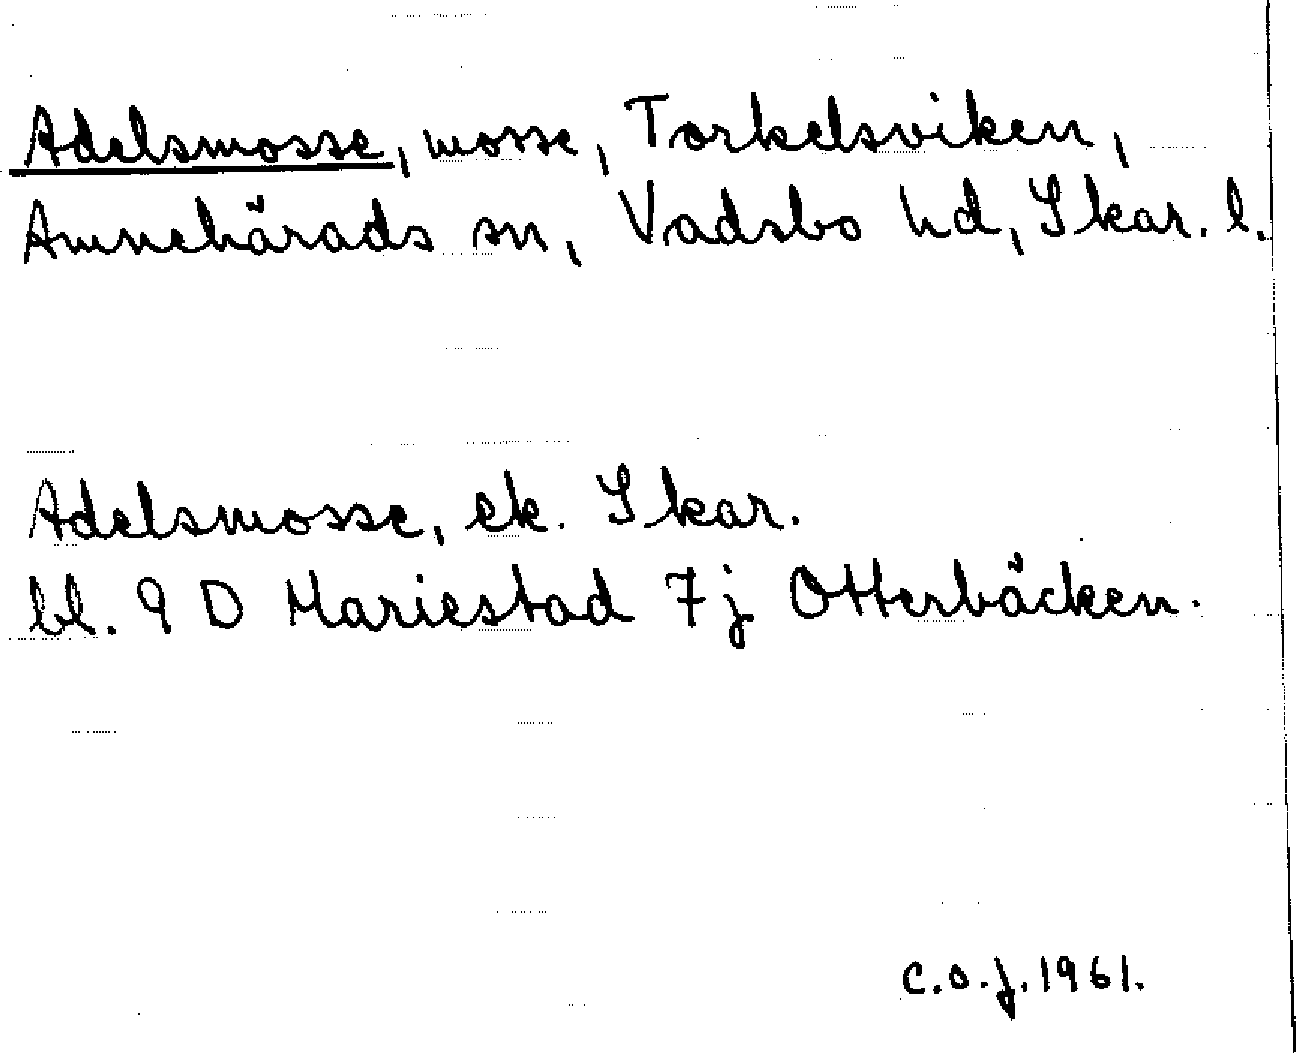 Adelsmosse, mosse, Torkelsviken,
Amnehärads sn, Vadsbo hd, Skar. l.
Adelsmosse, ek. Skar.
bl. 9 D Mariestad 7j Otterbäcken.
C.O.J. 1961.